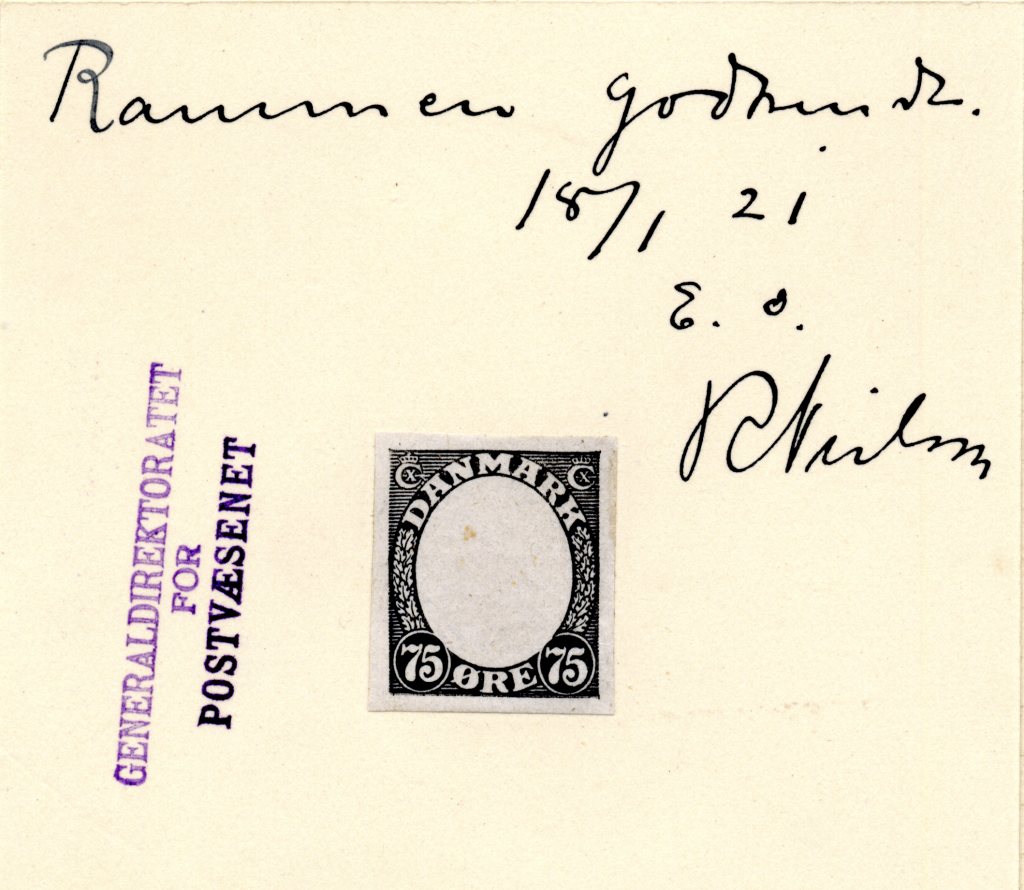 Rammen godkendt.
18/1 21
E. O.
GENERALDIREKTORATET
FOR
POSTVÆSENET
DANMARK
75 ØRE 75